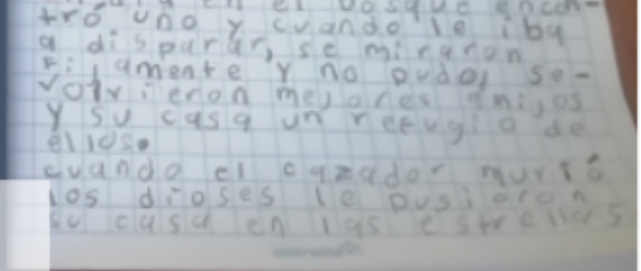 en el bosque encon-
tró uno y cuando le iba
a disparar, se miraron
fijamente y no pudo, se-
volvieron mejores amijos
y su casa un refugio de
ellos.
cuando el cazador murió
los dioses le pusieron
su casa en las estrellas